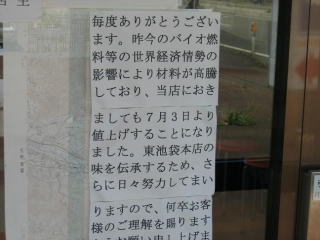 毎度ありがとうござい
ます。昨今のバイオ燃
料等の世界経済情勢の
影響により材料が高騰
しており、当店におき
ましても7月3日より
値上げすることになり
ました。東池袋本店の
味を伝承するため、さ
らに日々努力してまい
りますので、何卒お客
様のご理解を賜ります